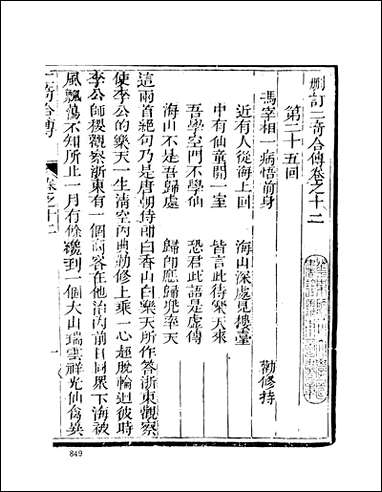 刪訂二奇合傳卷之十二
第二十五回
馮宰相一病悟前身　勸修持
近有人從海上回　海山深處見樓臺
中有仙童開一室　皆言此待樂天來
吾學空門不學仙　恐君此語是虛傳
海山不是吾歸處　歸即應歸兜率天
這兩首絕句乃是唐朝侍郎白香山白樂天所作答浙東觀察
使李公的樂天一生淸空內典勤修上乘一心超脫輪迴彼時
李公師稷觀察浙東有一個商客在他治內前日同眾下海被
風飄蕩不知所止一月有餘纔到一個大山瑞雲祥光仙禽異
二奇合傳
卷之十二
一
849